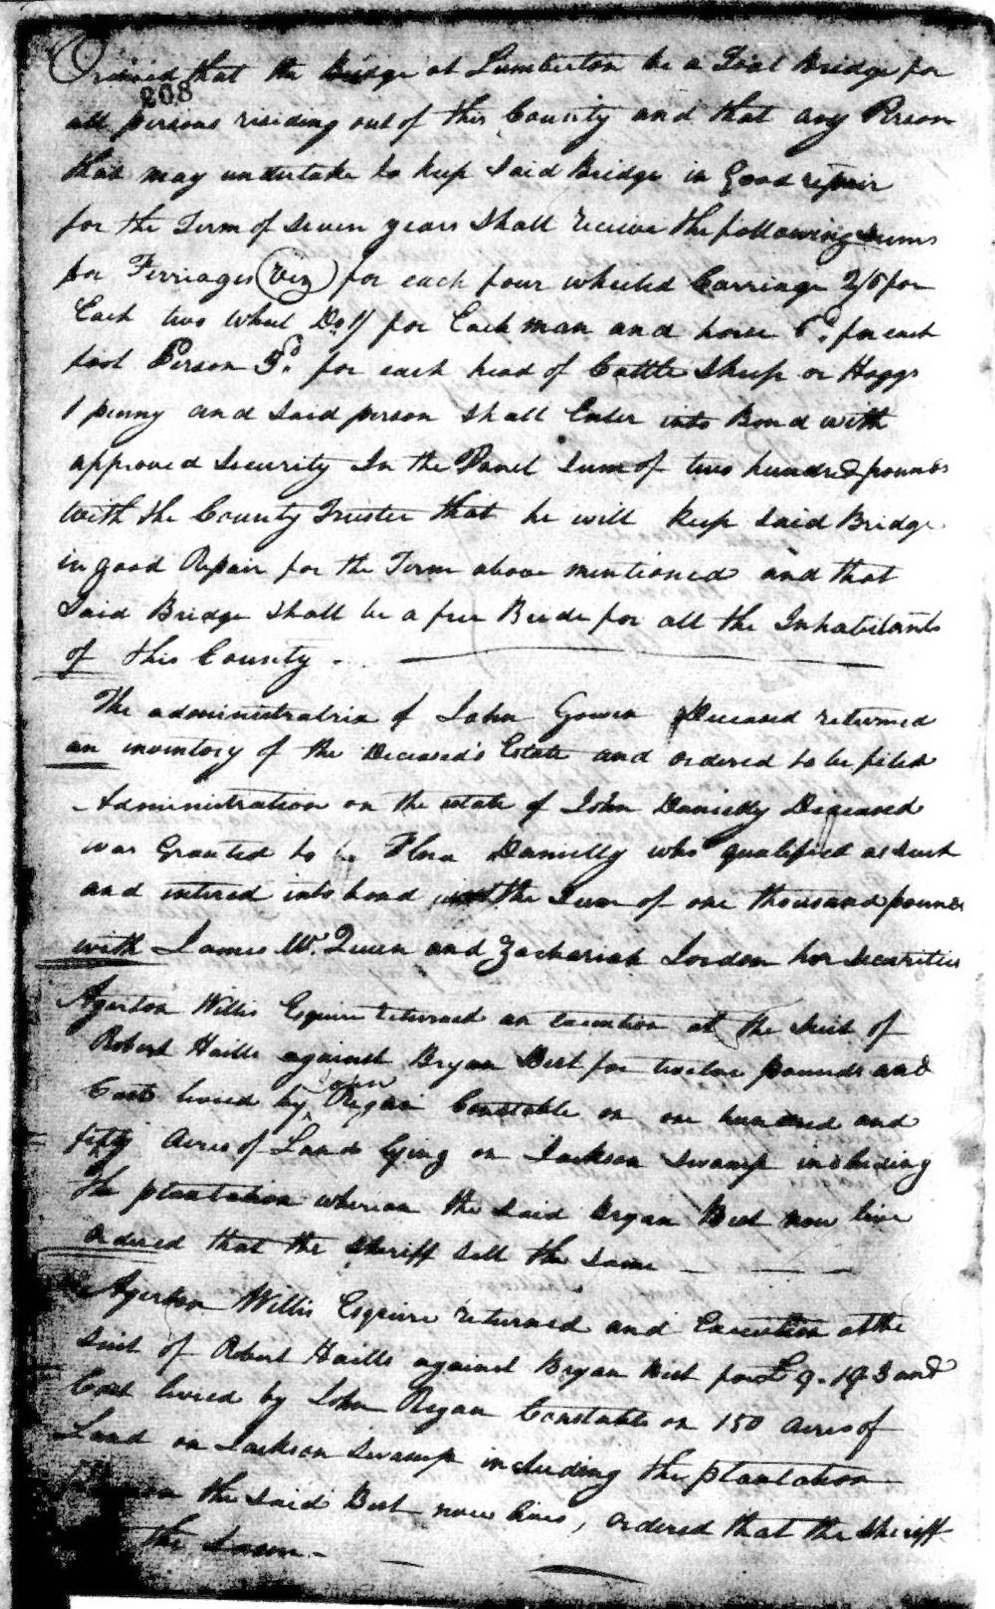 Ordered that the Bridge at Lumberton be a Toal Bridge for
208
all persons residing out of this County and that any Person
that may undertake to keep Said Bridge in Good repair
for the Term of Seven years Shall receive the following Sums
for Ferriages (Viz) for each four wheeled Carriage 2/6 for
Each two Wheel Do 1/ for Each man and horse 6d. for each
foot Person 3d. for each head of Cattle Sheep or Hoggs
1 penny and Said person Shall Enter into Bond with
approved Security In the Panel Sum of two hundred pounds
With the County Trustee that he will keep Said Bridge
in good Repair for the Term above mentioned and that
Said Bridge Shall be a free Bride for all the Inhabitants
of this County
The administratrix of John Gowen Deceased returned
an inventory of the Deceased's Estate and ordered to be filed
Administration on the estate of John Danielly Deceased
was Granted to Flora Danielly who qualified as Such
and entered into bond the Sum of one thousand pounds
with James McQueen and Zachariah Jordon her Securities
Agerton Willis Esquire returned an execution at the Suit of
Robert Hails against Bryan Best for twelve pounds and
Cost levied by John Regan Constable on one hundred and
fifty Acres of Land lying on Jackson Swamp including
the plantation whereon the Said Bryan Best now live
Ordered that the Sheriff Sell the Same
Agerton Willis Esquire returned and Execution at the
Suit of Robert Hails against Bryan Best for £ 9. 19. 3 and
Cost levied by John Regan Constable on 150 Acres of
Land on Jackson Swamp including the plantation
the Said Best now lives, ordered that the Sheriff
the Same